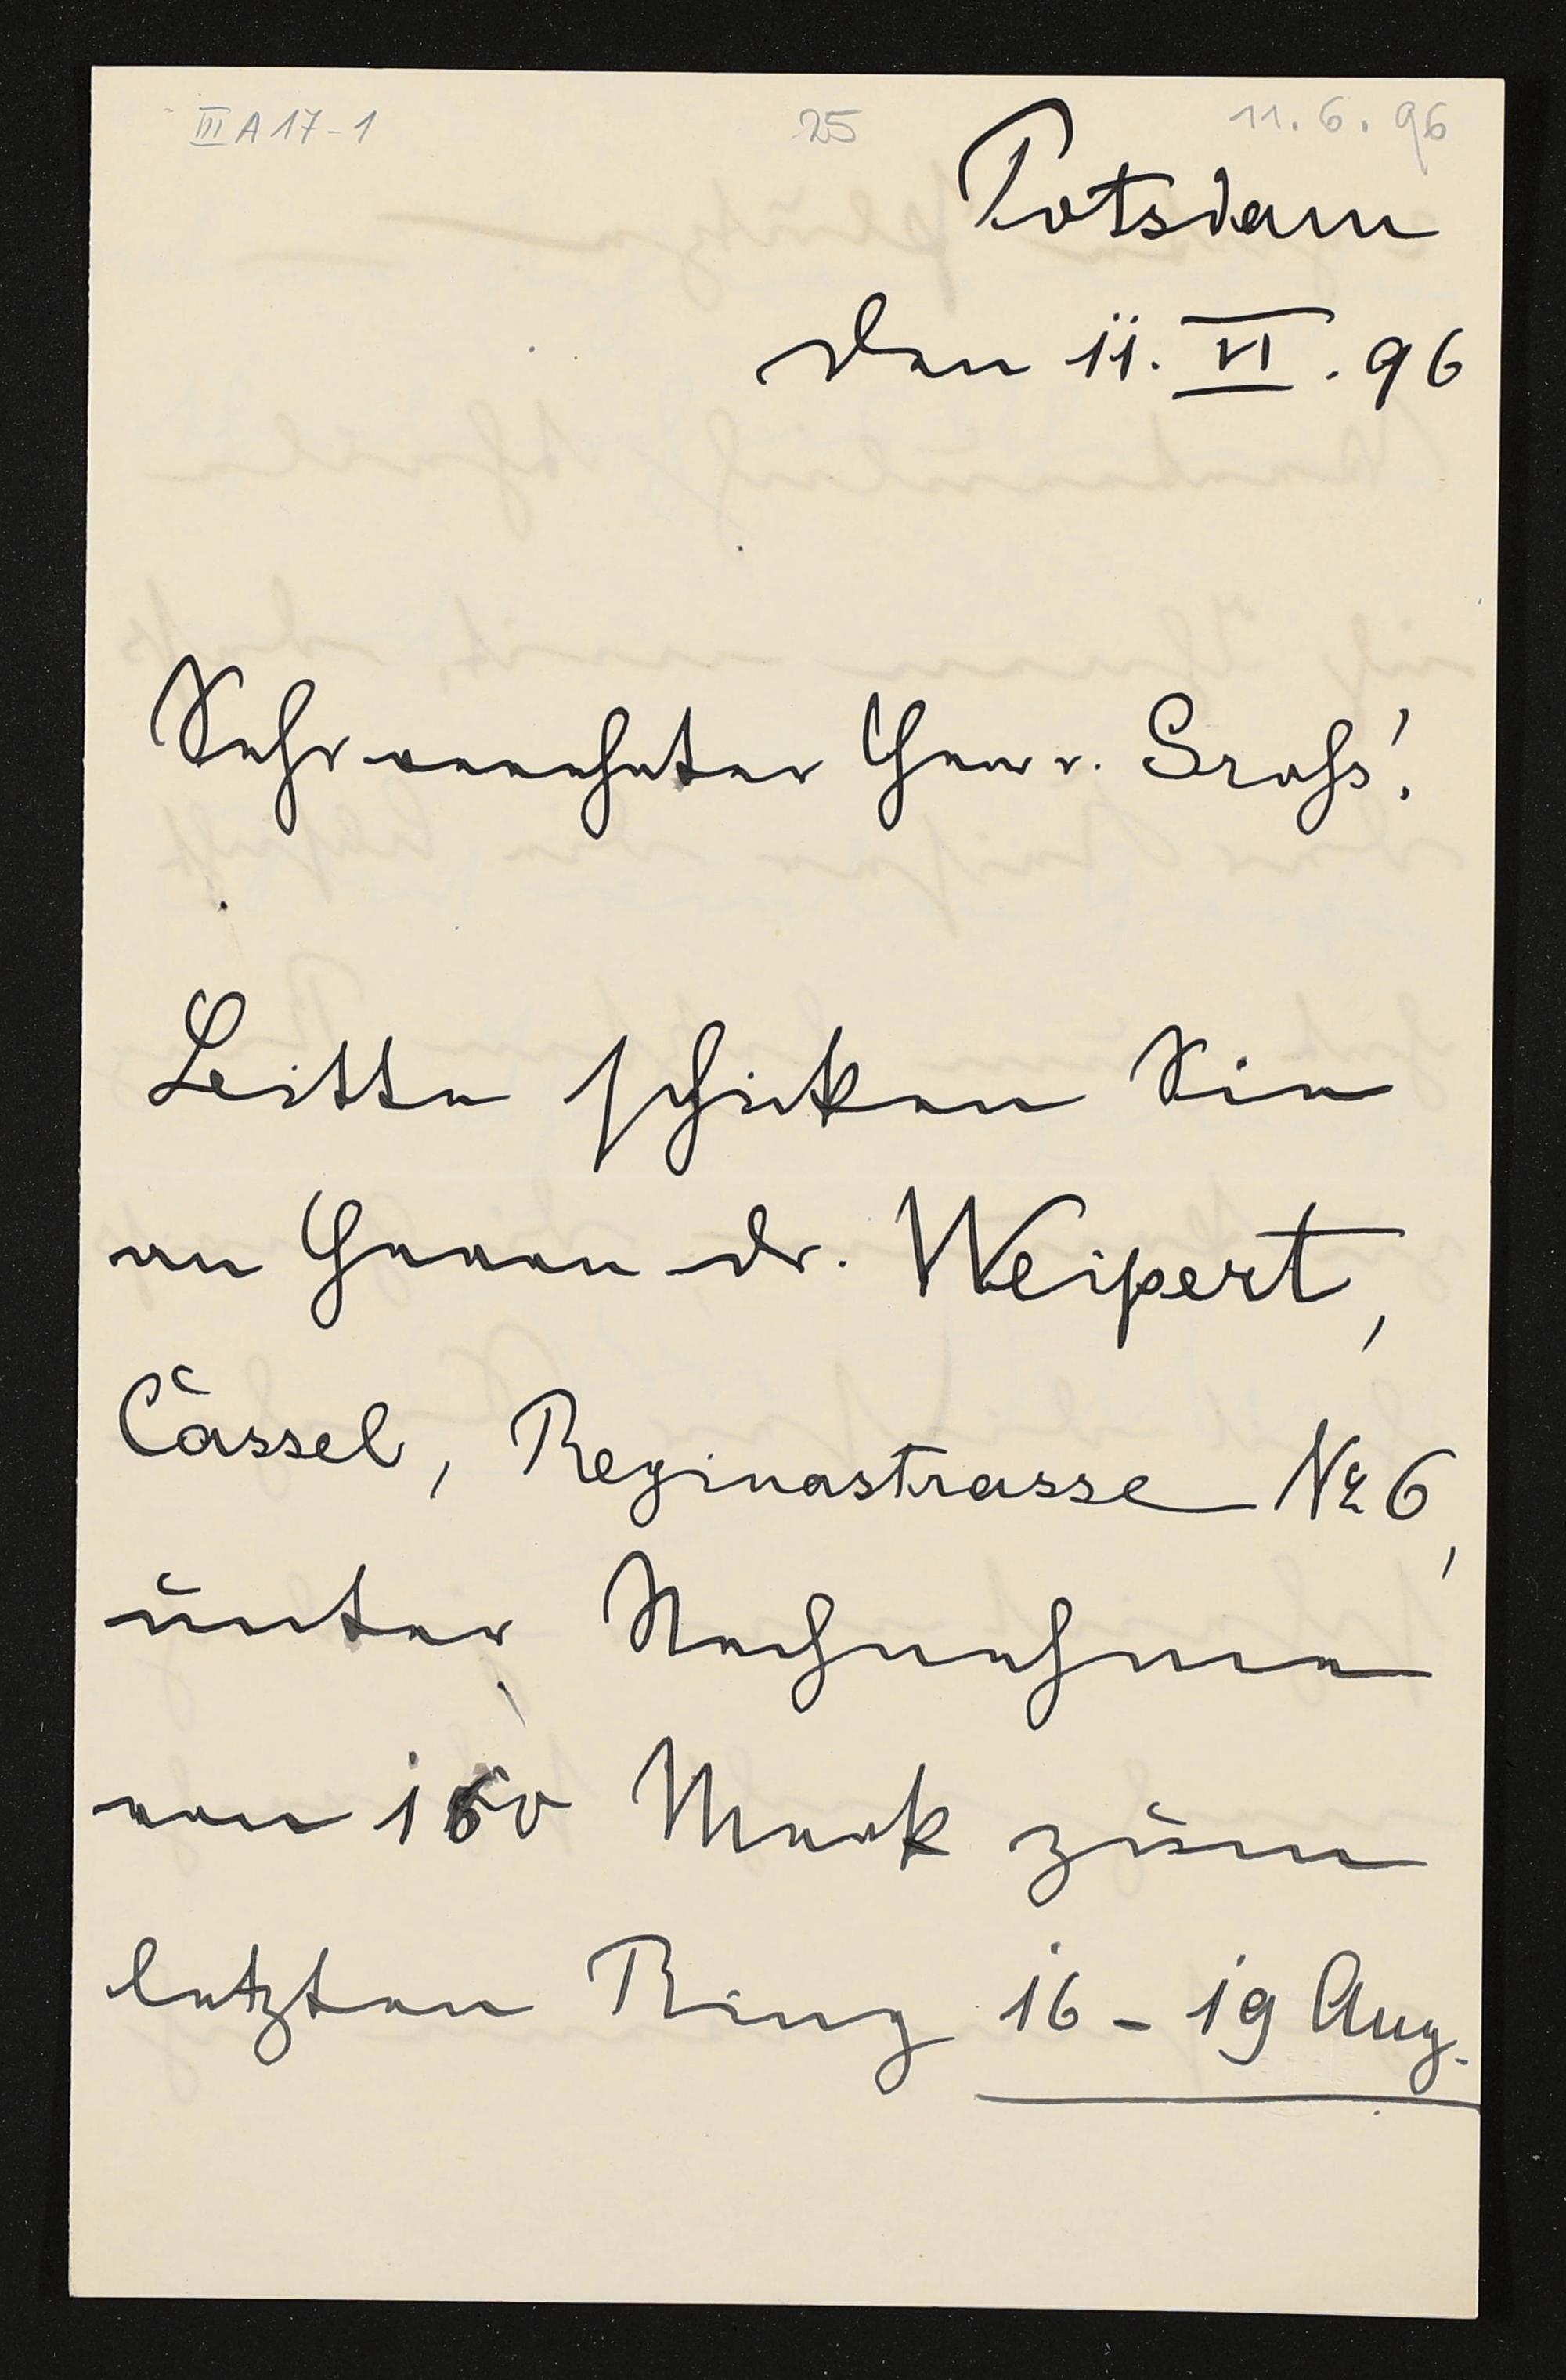 III A 17-1 25 11.6.96
Potsdam
den 11. VI. 96
Sehr verehrter Herr v. Gross!
Bitte schicken Sie
an Herrn Dr. Weipert,
Cassel, Reginastrasse № 6,
unter Nachnahme
von 160 Mark zum
letzten Ring 16 - 19 Aug.